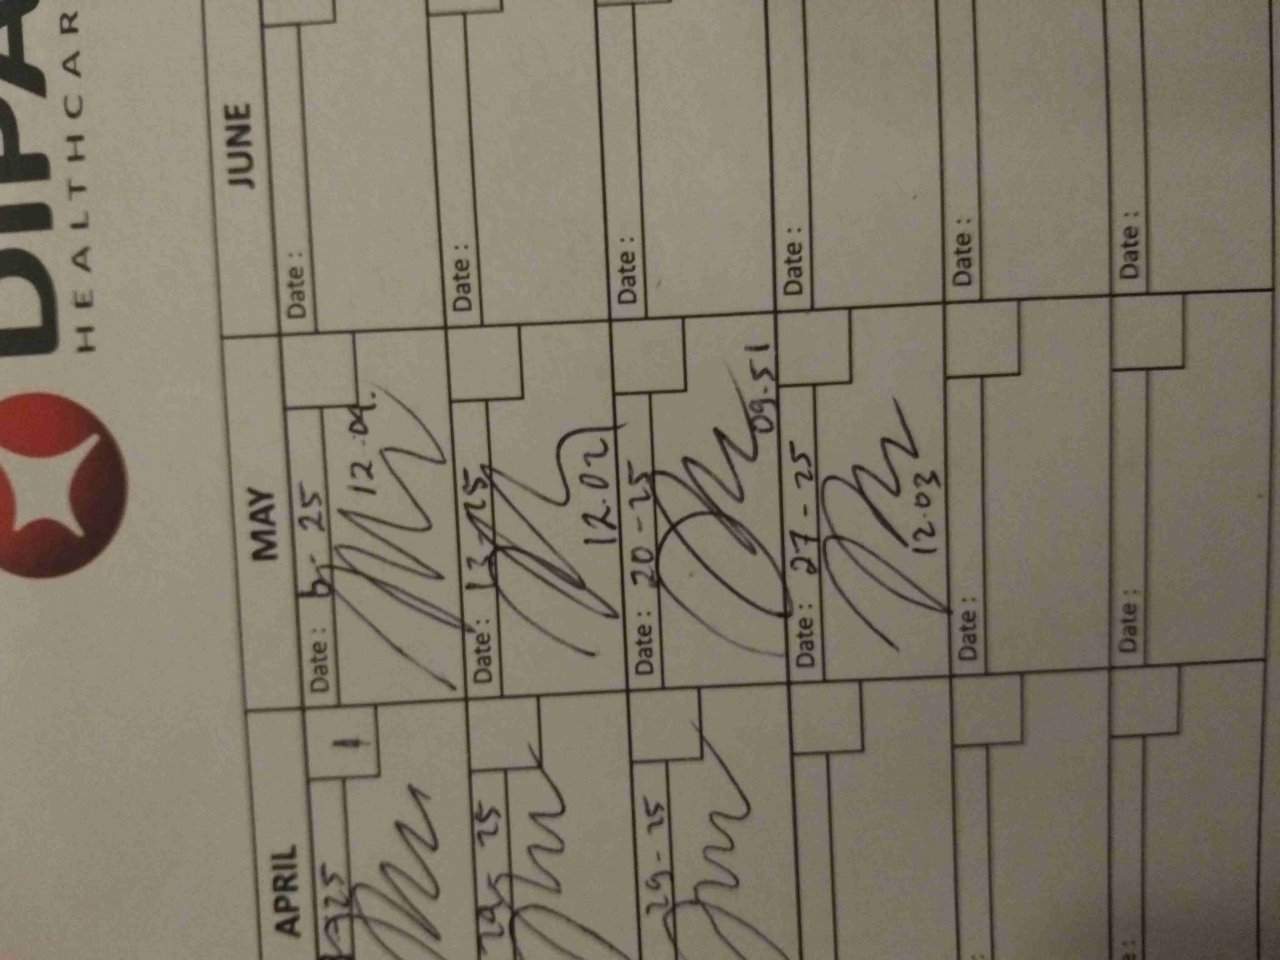 DIPA
HEALTHCAR
APRIL MAY JUNE
25 Date : 6 - 25 Date :
12.04.
25 Date : 13-25 Date :
12.02
29 - 25 Date : 20 - 25 Date :
09.51
Date : 27 - 25 Date :
12.03
Date : Date :
Date : Date :